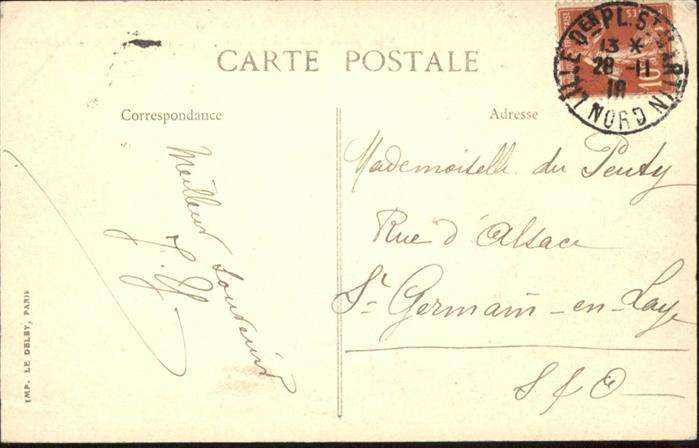 CARTE POSTALE
Correspondance
Adresse
LILLE Den PL. St MARTIN
13 *
28 - 11
NORD
10
Meilleur souvenir
Mademoiselle du
Rue d'Alsace
St Germain-en-Laye
S & O
IMP. LE DELEY, PARIS